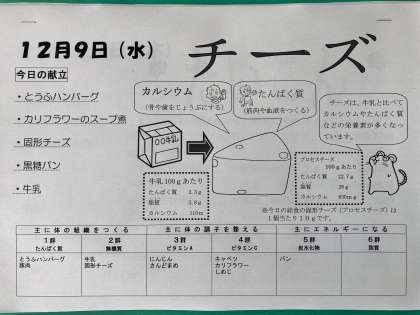 12月9日（水）
チーズ
今日の献立
・とうふハンバーグ
・カリフラワーのスープ煮
・固形チーズ
・黒糖パン
・牛乳
カルシウム
（骨や歯をじょうぶにする）
たんぱく質
（筋肉や血液をつくる）
チーズは、牛乳と比べて
カルシウムやたんぱく質
などの栄養素が多くなっ
ています。
○○牛乳
牛乳100gあたり
たんぱく質 3.3g
脂質 3.8g
カルシウム 110m
プロセスチーズ
100gあたり
たんぱく質 22.7g
脂質 26g
カルシウム 630mg
※今日の給食の固形チーズ（プロセスチーズ）は
1個当たり10gです。
主に体の組織をつくる 主に体の調子を整える 主にエネルギーになる
1群 2群 3群 4群 5群 6群
たんぱく質 無機質 ビタミンA ビタミンC 炭水化物 脂質
とうふハンバーグ 牛乳 にんじん キャベツ パン
豚肉 固形チーズ さんどまめ カリフラワー
しめじ